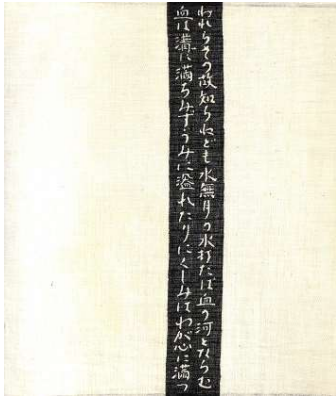 われらその故知らねども水無月の水打たば血の河とならむ
血は溝に満ちみずうみに溢れたりにくしみはわが心に満つ